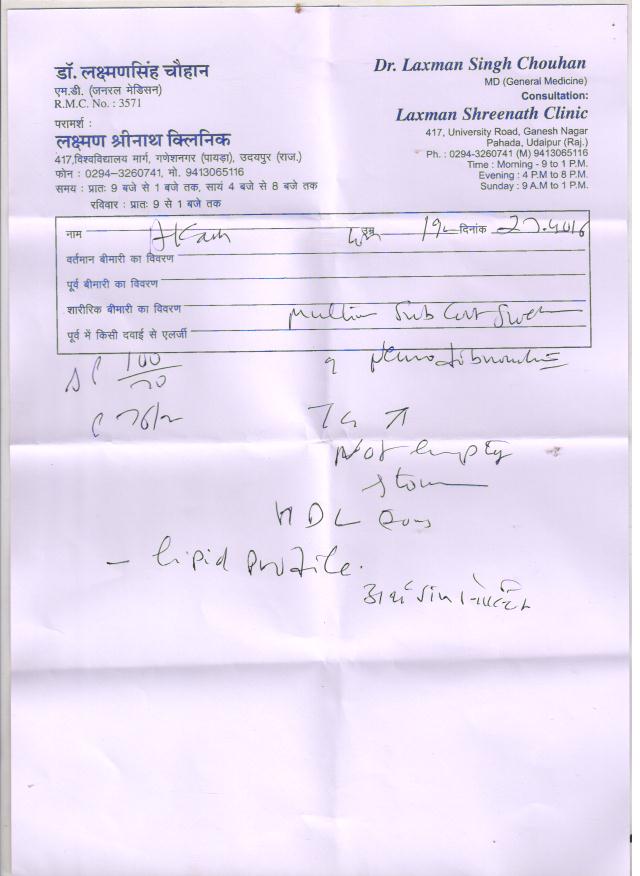 डॉ. लक्ष्मणसिंह चौहान
एम.डी. (जनरल मेडिसन)
R.M.C. No. : 3571
परामर्श :
लक्ष्मण श्रीनाथ क्लिनिक
417,विश्वविद्यालय मार्ग, गणेशनगर (पायड़ा), उदयपुर (राज.)
फोन : 0294–3260741, मो. 9413065116
समय : प्रातः 9 बजे से 1 बजे तक, सायं 4 बजे से 8 बजे तक
रविवार : प्रातः 9 से 1 बजे तक
Dr. Laxman Singh Chouhan
MD (General Medicine)
Consultation:
Laxman Shreenath Clinic
417, University Road, Ganesh Nagar
Pahada, Udaipur (Raj.)
Ph. : 0294-3260741 (M) 9413065116
Time : Morning - 9 to 1 P.M.
Evening : 4 P.M to 8 P.M.
Sunday : 9 A.M to 1 P.M.
नाम उम्र दिनांक
वर्तमान बीमारी का विवरण
पूर्व बीमारी का विवरण
शारीरिक बीमारी का विवरण
Sub Cut
पूर्व में किसी दवाई से एलर्जी
100
70
TG ↑
Not empty
HDL
– lipid profile.